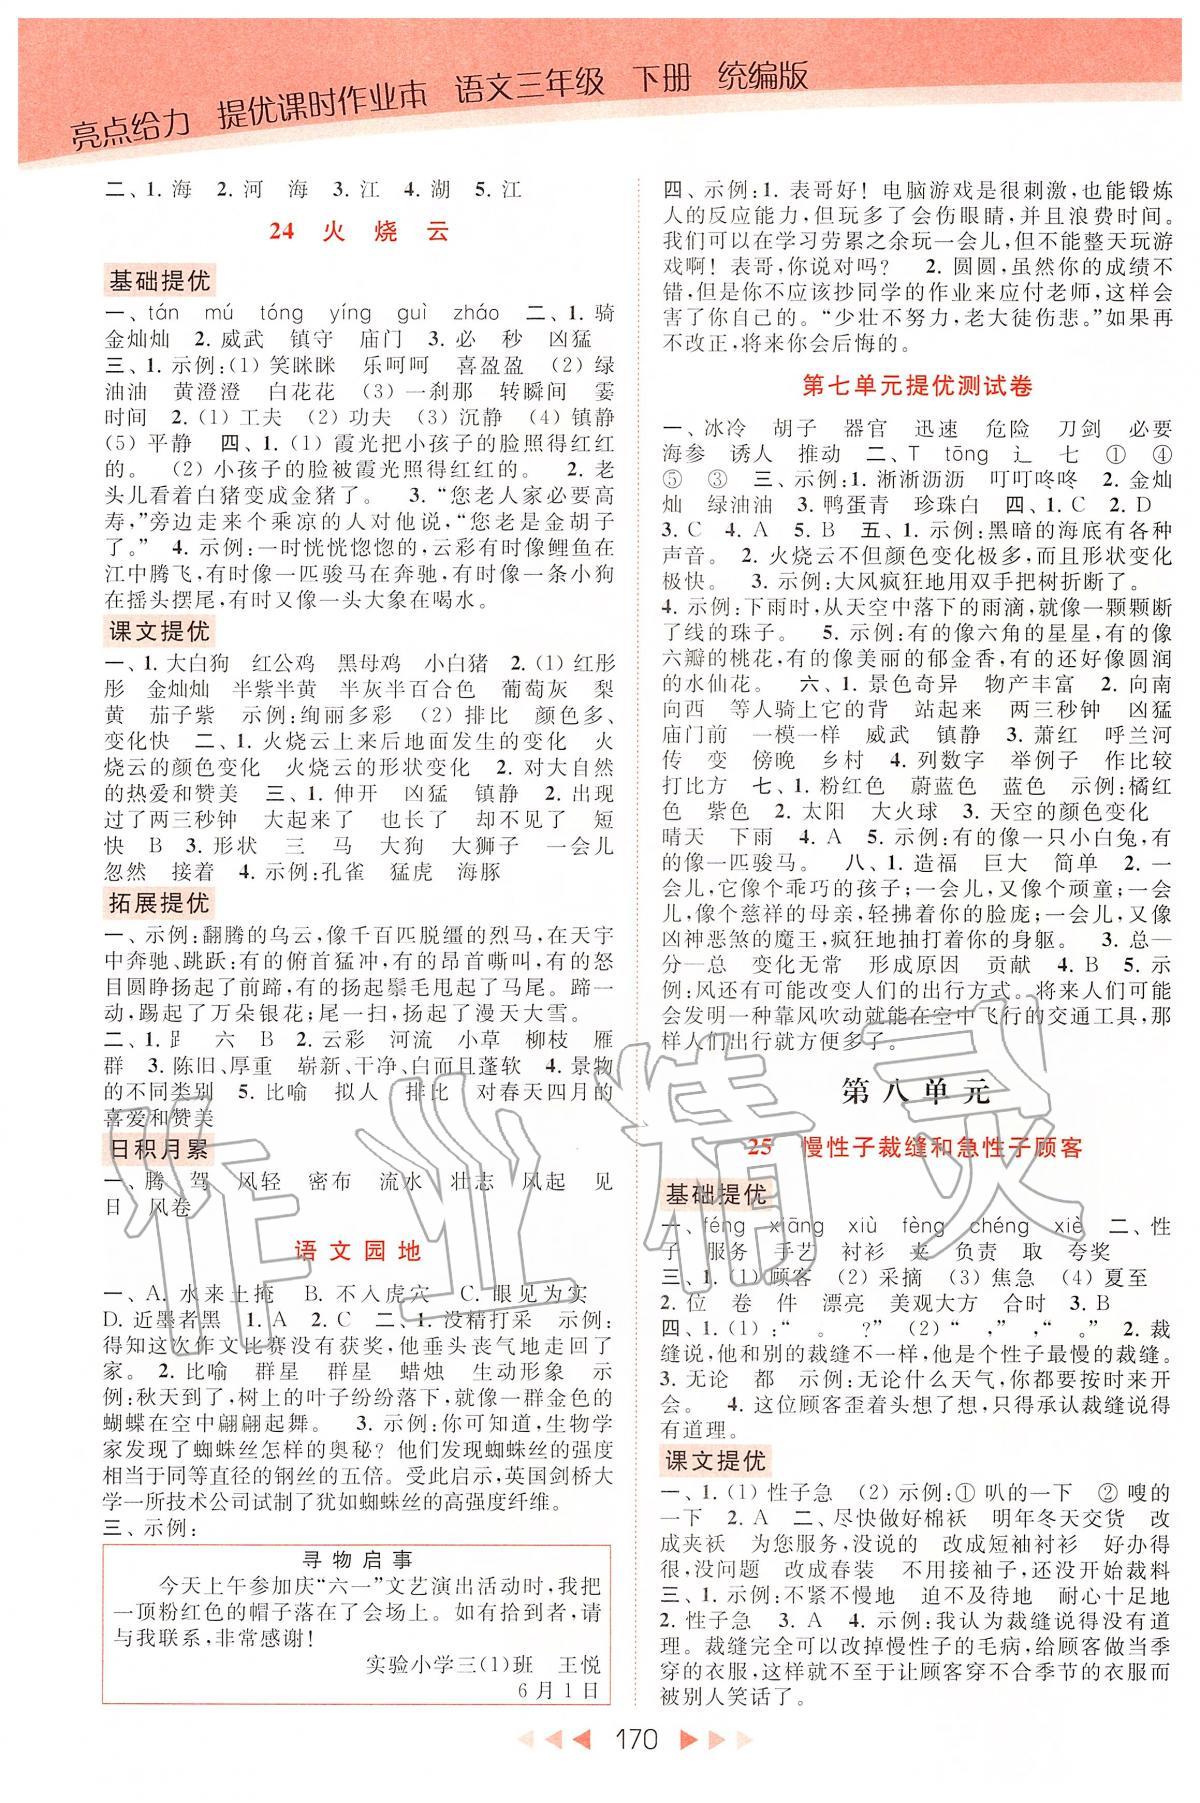 亮点给力 提优课时作业本 语文三年级 下册 统编版
二、1. 海 2. 河 海 3. 江 4. 湖 5. 江
24 火烧云
基础提优
一、tán mú tóng yíng guì zháo 二、1. 骑
金灿灿 2. 威武 镇守 庙门 3. 必 秒 凶猛
三、1. 示例:(1) 笑眯眯 乐呵呵 喜盈盈 (2) 绿
油油 黄澄澄 白花花 (3) 一刹那 转瞬间 霎
时间 2. (1) 工夫 (2) 功夫 (3) 沉静 (4) 镇静
(5) 平静 四、1. (1) 霞光把小孩子的脸照得红红
的。 (2) 小孩子的脸被霞光照得红红的。 2. 老
头儿看着白猪变成金猪了。 3. “您老人家必要高
寿,”旁边走来个乘凉的人对他说,“您老是金胡子
了。” 4. 示例:一时恍恍惚惚的,云彩有时像鲤鱼在
江中腾飞,有时像一匹骏马在奔驰,有时像一条小狗
在摇头摆尾,有时又像一头大象在喝水。
课文提优
一、1. 大白狗 红公鸡 黑母鸡 小白猪 2. (1) 红彤
彤 金灿灿 半紫半黄 半灰半百合色 葡萄灰 梨
黄 茄子紫 示例:绚丽多彩 (2) 排比 颜色多、
变化快 二、1. 火烧云上来后地面发生的变化 火
烧云的颜色变化 火烧云的形状变化 2. 对大自然
的热爱和赞美 三、1. 伸开 凶猛 镇静 2. 出现
过了两三秒钟 大起来了 也长了 却不见了 短
快 B 3. 形状 三 马 大狗 大狮子 一会儿
忽然 接着 4. 示例:孔雀 猛虎 海豚
拓展提优
一、示例:翻腾的乌云,像千百匹脱缰的烈马,在天宇
中奔驰、跳跃:有的俯首猛冲,有的昂首嘶叫,有的怒
目圆睁扬起了前蹄,有的扬起鬃毛甩起了马尾。蹄一
动,踢起了万朵银花;尾一扫,扬起了漫天大雪。
二、1. 𧾷 六 B 2. 云彩 河流 小草 柳枝 雁
群 3. 陈旧、厚重 崭新、干净、白而且蓬软 4. 景物
的不同类别 5. 比喻 拟人 排比 对春天四月的
喜爱和赞美
日积月累
一、腾 驾 风轻 密布 流水 壮志 风起 见
日 风卷
语文园地
一、A. 水来土掩 B. 不入虎穴 C. 眼见为实
D. 近墨者黑 1. A 2. C 二、1. 没精打采 示例:
得知这次作文比赛没有获奖,他垂头丧气地走回了
家。 2. 比喻 群星 群星 蜡烛 生动形象 示
例:秋天到了,树上的叶子纷纷落下,就像一群金色的
蝴蝶在空中翩翩起舞。 3. 示例:你可知道,生物学
家发现了蜘蛛丝怎样的奥秘?他们发现蜘蛛丝的强度
相当于同等直径的钢丝的五倍。受此启发,英国剑桥大
学一所技术公司试制了犹如蜘蛛丝的高强度纤维。
三、示例:
寻物启事
今天上午参加庆“六一”文艺演出活动时,我把
一顶粉红色的帽子落在了会场上。如有拾到者,请
与我联系,非常感谢!
实验小学三(1)班 王悦
6月1日
四、示例:1. 表哥好!电脑游戏是很刺激,也能锻炼
人的反应能力,但玩多了会伤眼睛,并且浪费时间。
我们可以在学习劳累之余玩一会儿,但不能整天玩游
戏啊!表哥,你说对吗? 2. 圆圆,虽然你的成绩不
错,但是你不应该抄同学的作业来应付老师,这样会
害了你自己的。“少壮不努力,老大徒伤悲。”如果再
不改正,将来你会后悔的。
第七单元提优测试卷
一、冰冷 胡子 器官 迅速 危险 刀剑 必要
海参 诱人 推动 二、T tōng 辶 七 ① ④
⑤ ③ 三、示例:1. 淅淅沥沥 叮叮咚咚 2. 金灿
灿 绿油油 3. 鸭蛋青 珍珠白 四、1. C 2. D
3. C 4. A 5. B 五、1. 示例:黑暗的海底有各种
声音。 2. 火烧云不但颜色变化极多,而且形状变化
极快。 3. 示例:大风疯狂地用双手把树折断了。
4. 示例:下雨时,从天空中落下的雨滴,就像一颗颗断
了线的珠子。 5. 示例:有的像六角的星星,有的像
六瓣的桃花,有的像美丽的郁金香,有的还好像圆润
的水仙花。 六、1. 景色奇异 物产丰富 2. 向南
向西 等人骑上它的背 站起来 两三秒钟 凶猛
庙门前 一模一样 威武 镇静 3. 萧红 呼兰河
传 变 傍晚 乡村 4. 列数字 举例子 作比较
打比方 七、1. 粉红色 蔚蓝色 蓝色 示例:橘红
色 紫色 2. 太阳 大火球 3. 天空的颜色变化
晴天 下雨 4. A 5. 示例:有的像一只小白兔,有
的像一匹骏马。 八、1. 造福 巨大 简单 2. 一
会儿,它像个乖巧的孩子;一会儿,又像个顽童;一会
儿,像个慈祥的母亲,轻拂着你的脸庞;一会儿,又像
凶神恶煞的魔王,疯狂地抽打着你的身躯。 3. 总—
分—总 变化无常 形成原因 贡献 4. B 5. 示
例:风还有可能改变人们的出行方式。将来人们可能
会发明一种靠风吹动就能在空中飞行的交通工具,那
样人们出行就方便多了。
第八单元
25 慢性子裁缝和急性子顾客
基础提优
一、féng xiāng xiù fèng chéng xiè 二、性
子 服务 手艺 衬衫 夹 负责 取 夸奖
三、1. (1) 顾客 (2) 采摘 (3) 焦急 (4) 夏至
2. 位 卷 件 漂亮 美观大方 合时 3. B
四、1. (1) :“ 。 ?” (2) “ ,” ,“ 。” 2. 裁
缝说,他和别的裁缝不一样,他是个性子最慢的裁缝。
3. 无论 都 示例:无论什么天气,你都要按时来开
会。 4. 这位顾客歪着头想了想,只得承认裁缝说得
有道理。
课文提优
一、1. (1) 性子急 (2) 示例:① 叭的一下 ② 嗖的
一下 2. A 二、尽快做好棉袄 明年冬天交货 改
成夹袄 为您服务,没说的 改成短袖衬衫 好办得
很,没问题 改成春装 不用接袖子,还没开始裁料
三、1. 示例:不紧不慢地 迫不及待地 耐心十足地
2. 性子急 3. A 4. 示例:我认为裁缝说得没有道
理。裁缝完全可以改掉慢性子的毛病,给顾客做当季
穿的衣服,这样就不至于让顾客穿不合季节的衣服而
被别人笑话了。
170
作业精灵